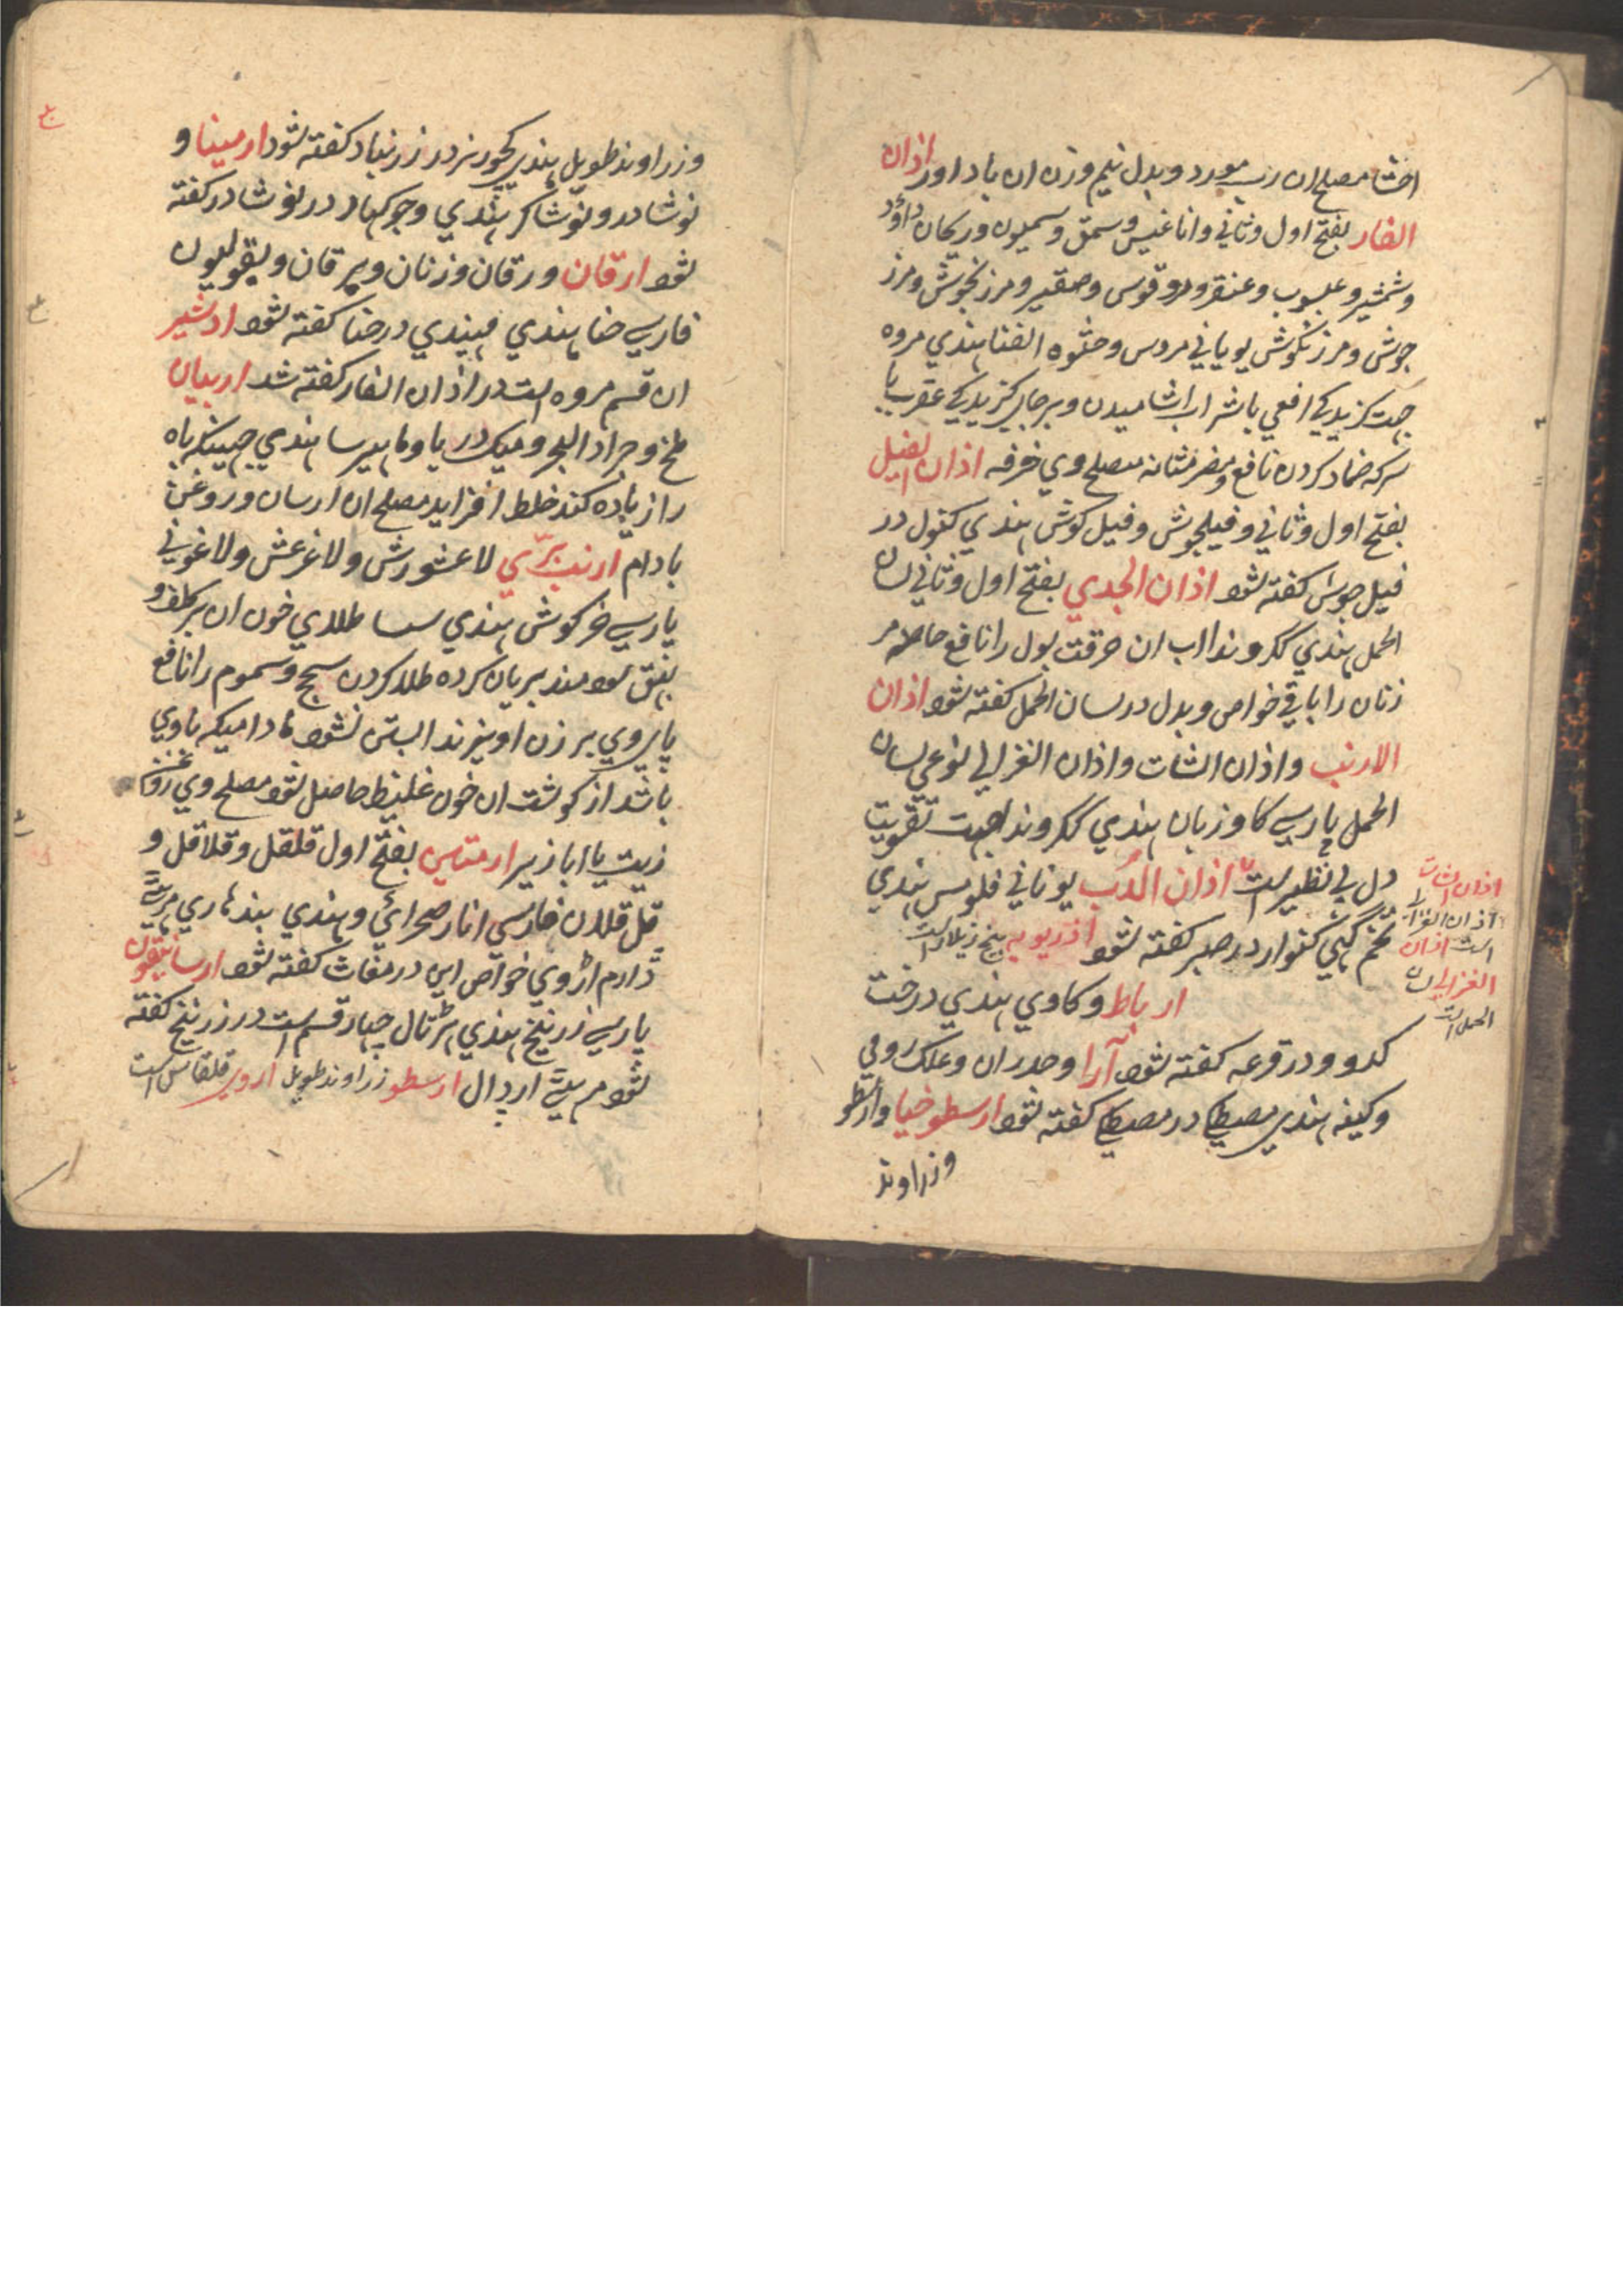 احشا مصلح ان رب مورد و بدل نیم وزن ان باد اورد اذان
الفار بفتح اول و ثاني و اناغلیس و سمق و سمیون و ریحان داود
و شمشیر و عبسوب و عنقر و مردقوس و مرزنجوش و مرز
جوش و مرزنکوش یوناني مردس و الفنا هندي مروه
جهت کزیدکي افعي با شراب اشامیدن و بر جاي کزیدکي عقرب با
سرکه ضماد کردن نافع و مضر مثانه مصلح وي خرفه اذان الفیل
بفتح اول و ثاني و فیلجوش و فیل کوش هندي کنول در
فیل جوش کفته شود اذان الجدي بفتح اول و ثاني لسان
الحمل هندي ککروندا اب ان حرقت بول را نافع خاصه مر
زنان را باقي خواص و بدل در لسان الحمل کفته شود اذان
الارنب و اذان الشات و اذان الغزال نوعي لسان
الحمل پارسي کاو زبان هندي ککروندا جهت تقویت
دل بي نظیر است اذان الدب یوناني فلومس هندي
تخم کهي کنوار در صبر کفته شود اذریویه بیخ زیلار است
ارباط و کاوي هندي درخت
کدو و در قرعه کفته شود آرا و حدران و علک رومي
و کیفه هندي مصطکي در مصطکي کفته شود ارسطوخیا و ارسطو
و زراوند
اذان الشات
اذان
است اذان
الغزال لسان
الحمل است
و زراوند طویل هندي کچور نر در زرنباد کفته شود ارمینا و
نوشادر و نوشاکر هندي و جوکهار در نوشادر کفته
شود ارقان و رقان و زنان و یرقان و لیقولیون
فارسي حنا هندي مهندي در حنا کفته شود اردشیر
ان قسم مروه است در اذان الفار کفته شد اربیان
ملخ و جراد البحر و میک دریا و هندي جهینکه باه
را زیاده کند خلط افزاید مصلح ان ارسان و روغن
بادام ارنب بري لاعشورش و لاغرعش و لاغوني
پارسي خرکوش هندي سسا طلاي خون ان بر کلف و
بهق سودمند بریان کرده طلا کردن سحج و سموم را نافع
پاي وي بر زن اویزند ابستن نشود مادامیکه با وي
باشد از کوشت ان خون غلیظ حاصل شود مصلح وي روغن
زیت یا ابازیر ارمتاس بفتح اول قلقل و قلاقل و
قل قلان فارسي انار صحرائي و هندي
دارم اژوي خواص این در مغاث کفته شود ارسانیقون
پارسي زرنیخ هندي هرتال چهار قسم است در زرنیخ کفته
شود اردال ارسطو زراوند طویل اروي قلقاس است